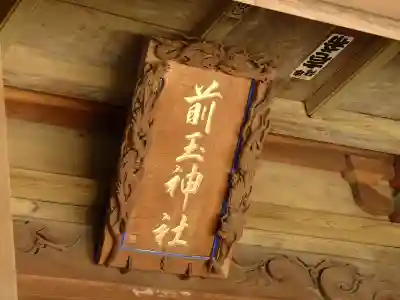 前玉神社